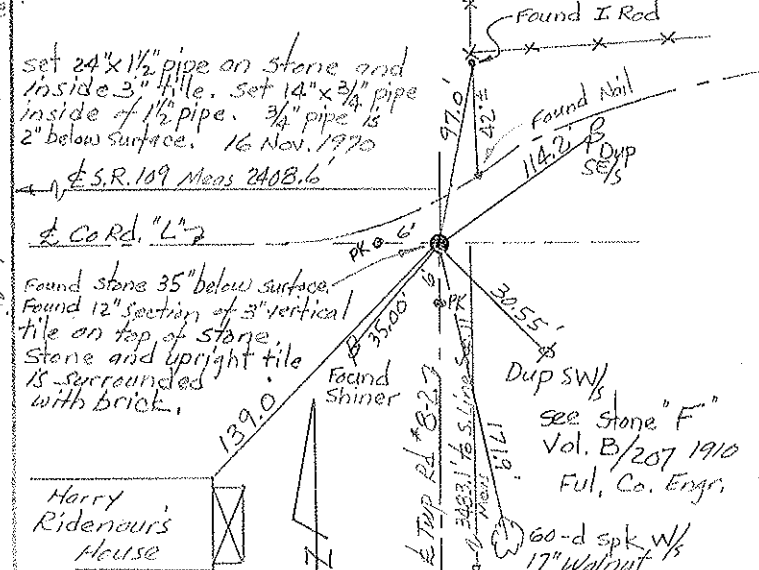 Found I Rod
set 24"x1½" pipe on stone and
inside 3" tile. set 14"x¾" pipe
inside of 1½" pipe. ¾" pipe is
2" below surface. 16 Nov. 1970
97.0'
42'±
Found Nail
114.2'
Dup
SE/s
℄ S.R. 109 Meas 2408.6'
℄ Co Rd. "L"
PK
6'
Found stone 35" below surface.
Found 12" section of 3" vertical
tile on top of stone.
Stone and upright tile
is surrounded
with brick.
6'
PK
35.00'
Found
Shiner
30.55'
Dup SW/s
139.0'
℄ Twp Rd #8-2
3483.1' to S. Line Sec. 11
Meas
171.9'
see stone "F"
Vol. B/207 1910
Ful. Co. Engr.
Harry
Ridenour's
House
N
60-d spk W/s
17" Walnut